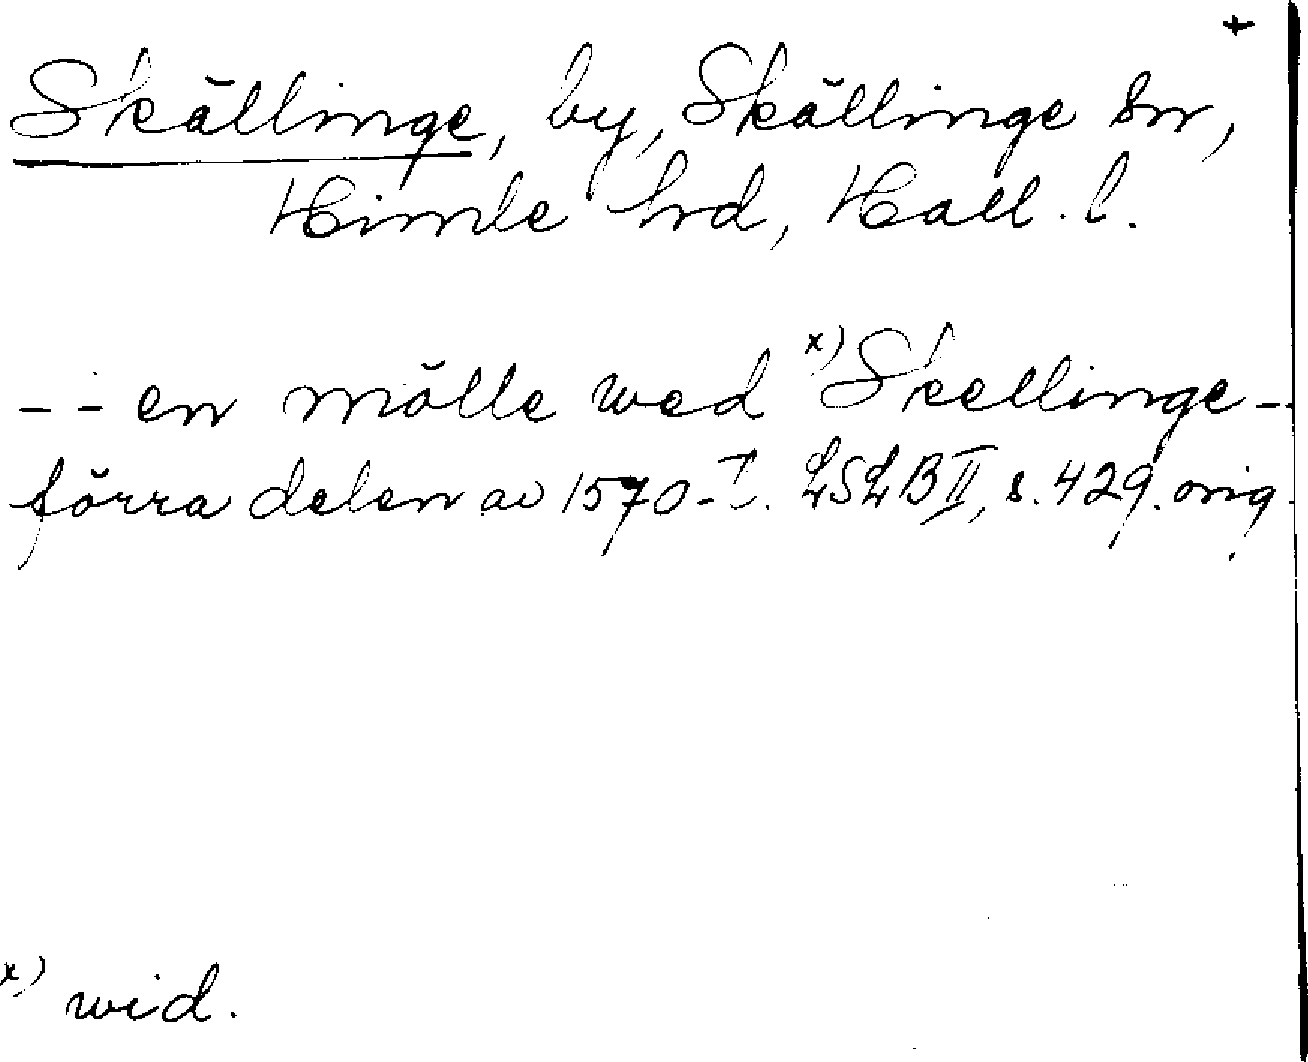 +
Skällinge, by, Skällinge sn,
Himle hrd, Hall. l.
- - en mölle wed x) Skellinge - -
förra delen av 1570-T. LSLB II, s. 429. orig.
x) wid.